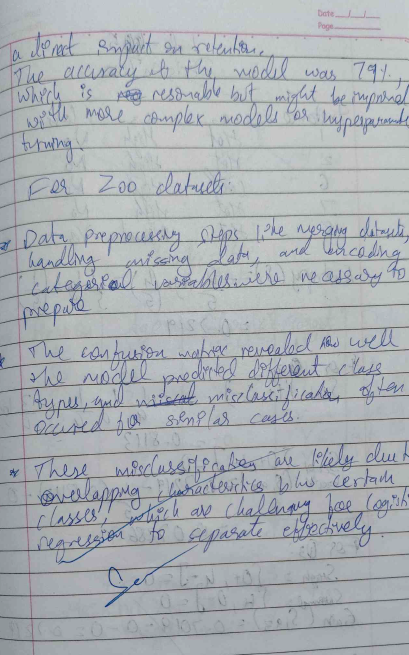 Date
Page
a direct impact on retention.
The accuracy of the model was 79%,
which is resonable but might be improved
with more complex models or hyperparamete
turning.
For Zoo datasets:
* Data preprocessing steps like merging datasets,
handling missing data, and encoding
categorical variables were necessary to
prepare
* The confusion matrix revealed how well
the model predicted different class
types, and misclassification often
occured for similar cases.
* These misclassification are likely due to
overlapping characteristics b/w certain
classes, which are challenging for logisti
regression to separate effectively.